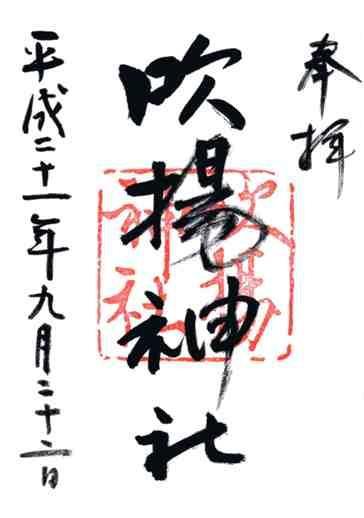 奉拝
吹揚神社
吹揚
神社
平成二十一年九月二十二日